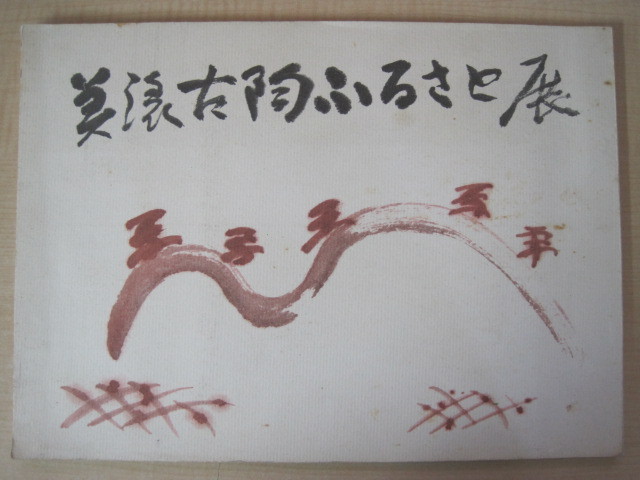 美濃古陶ふるさと展